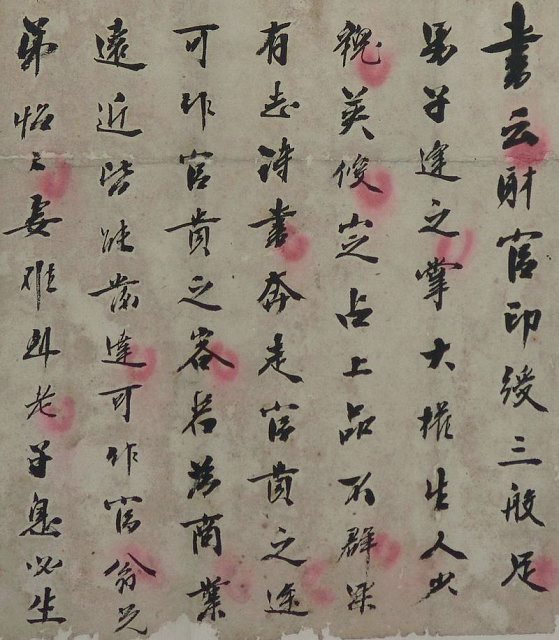 書云財官印綬三般足
男子逢之掌大權生人必
貌英俊岂占上品不群深
有志诗書奔走官貴之途
可作官貴之客若為商業
遠近皆能發達可作富翁兄
弟怡怡妻难到老子息必生